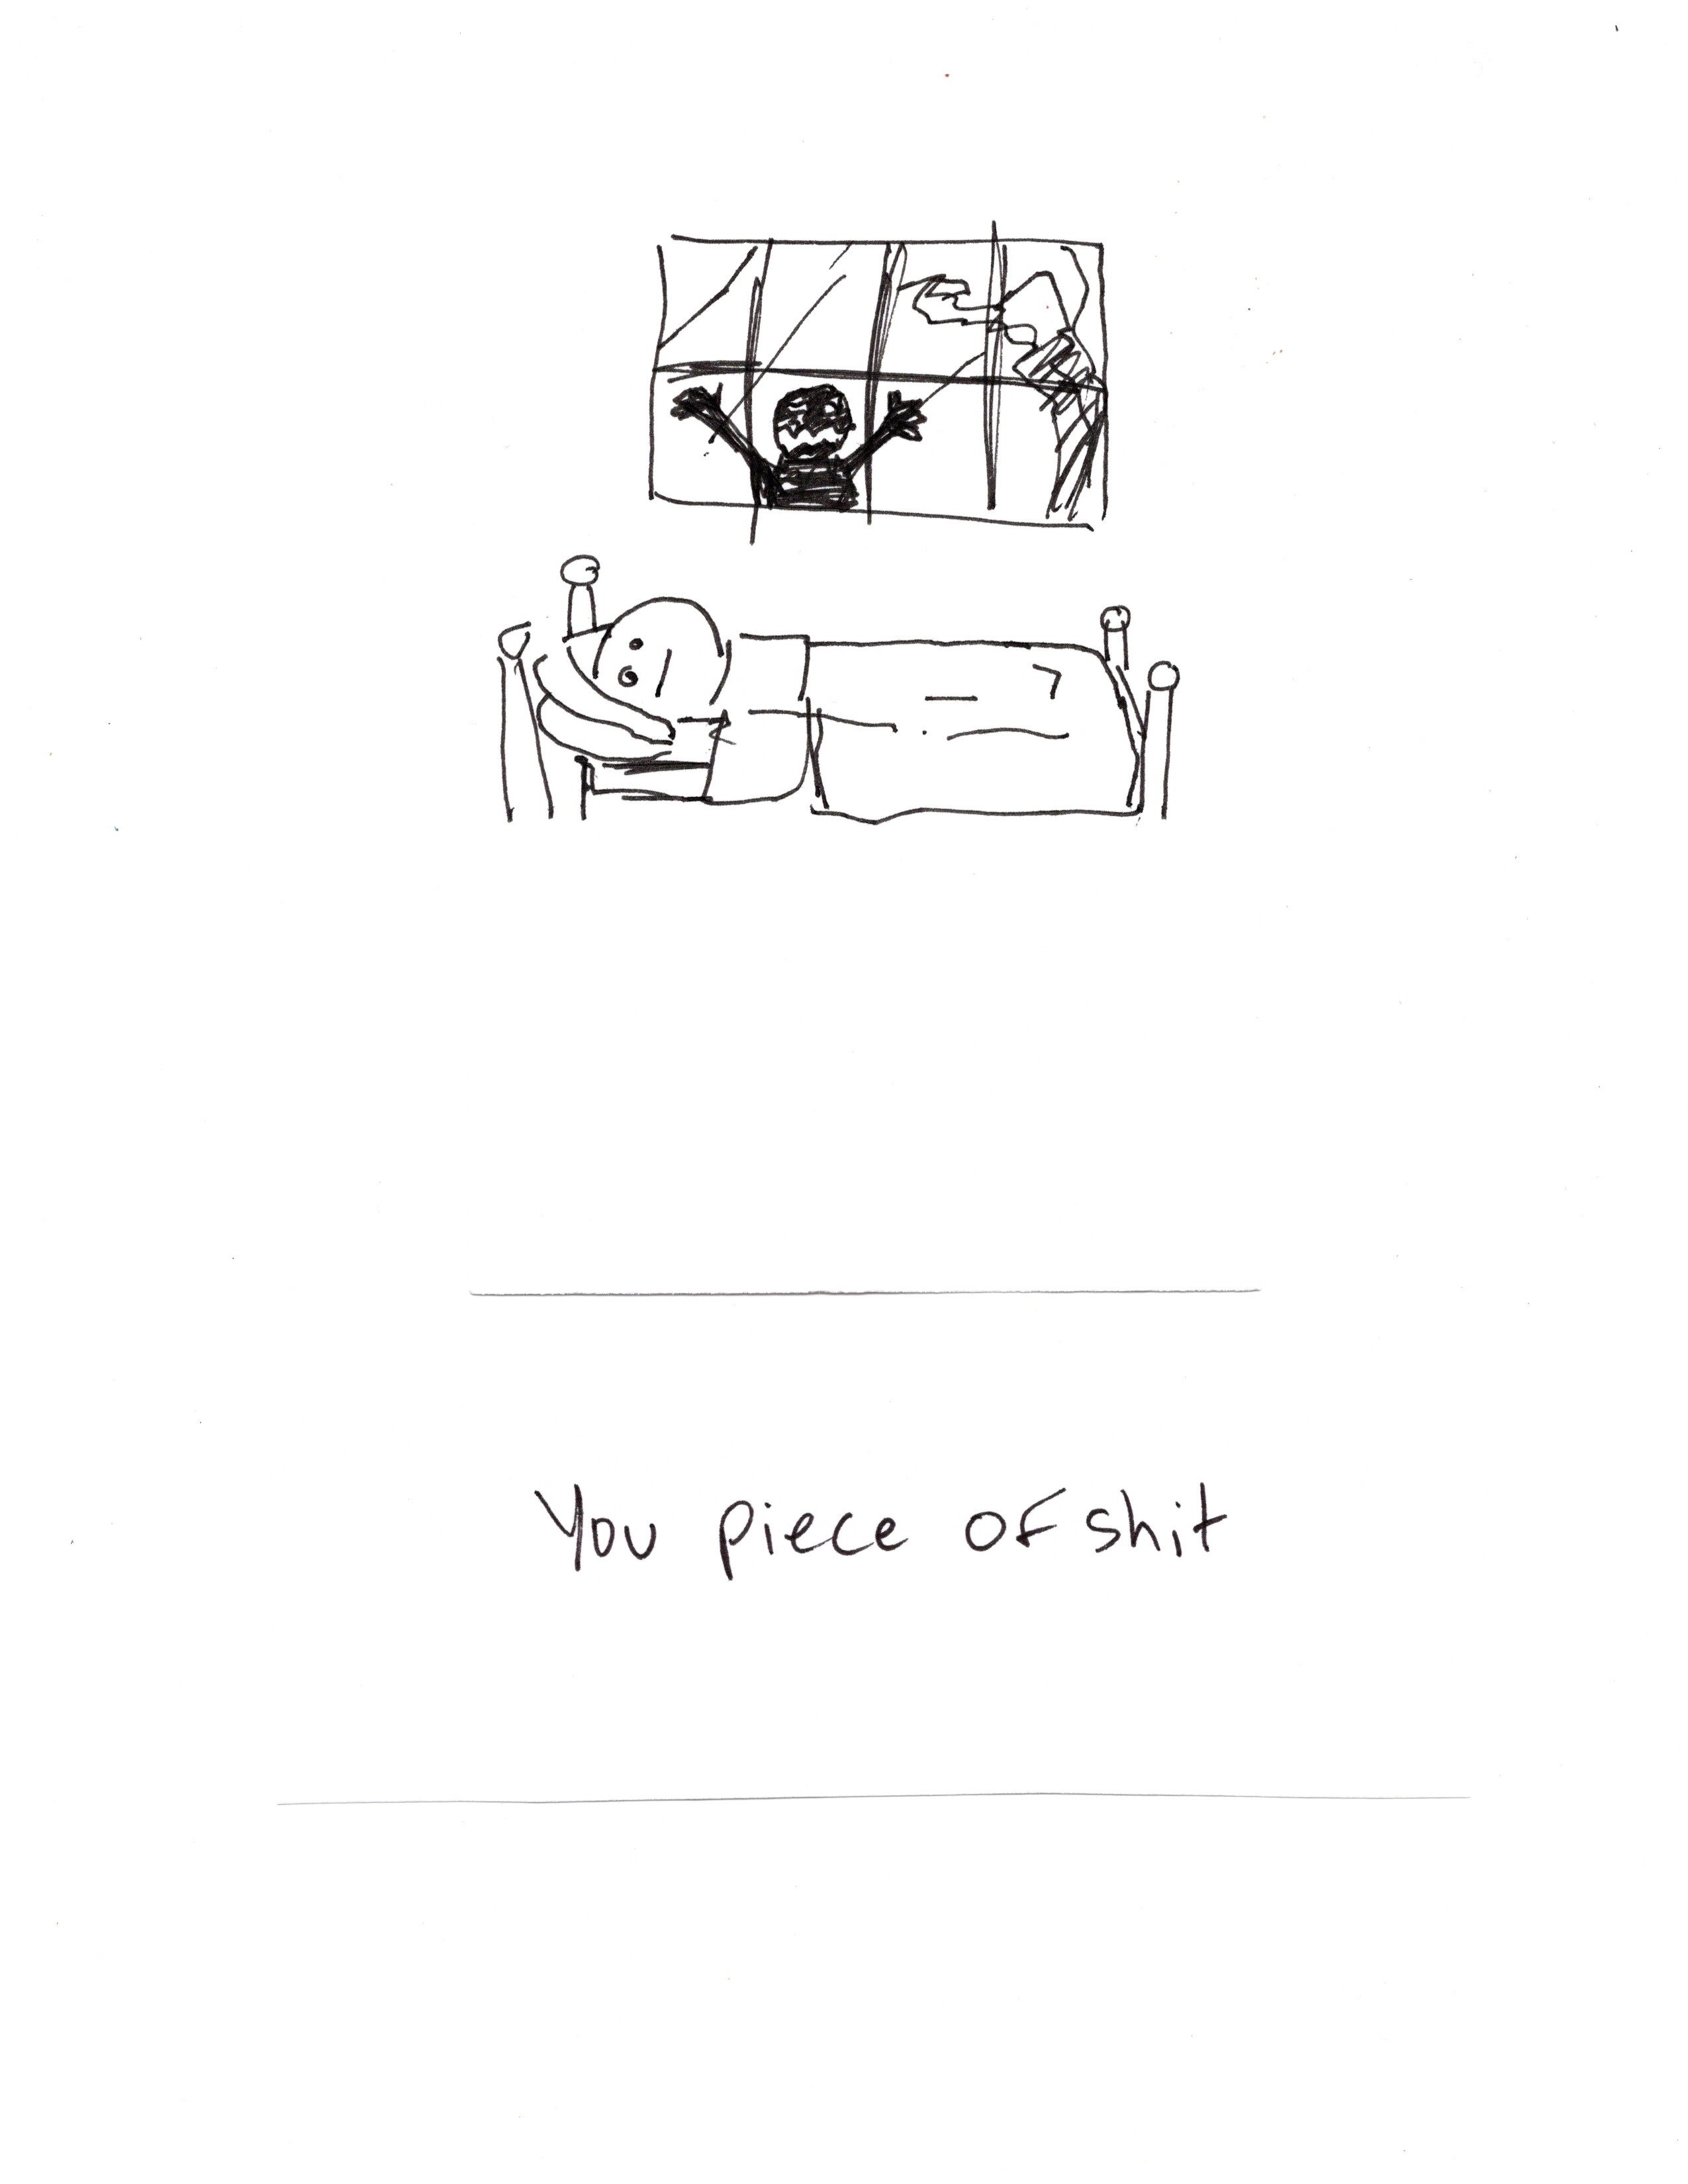 You piece of shit